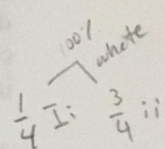 100%
white
1/4 Ii 3/4 ii